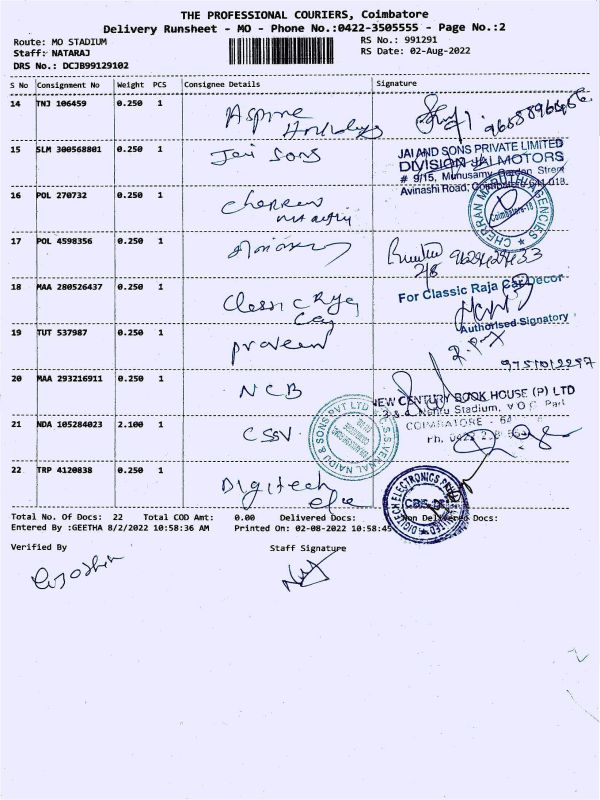 THE PROFESSIONAL COURIERS, Coimbatore
Delivery Runsheet - MO - Phone No.:0422-3505555 - Page No.:2
Route: MO STADIUM
Staff: NATARAJ
DRS No.: DCJB99129102
RS No.: 991291
RS Date: 02-Aug-2022
S No Consignment No Weight PCS Consignee Details Signature
14 TNJ 106459 0.250 1 Aspire Holidays
15 SLM 300568801 0.250 1 Jai Sons
JAI AND SONS PRIVATE LIMITED
DIVISION JAI MOTORS
# 9/15, Munusamy Garden Street
Avinashi Road, Coimbatore 641 018.
16 POL 270732 0.250 1 Cherran Maruthi
CHERRAN MARUTHI AGENCIES
Coimbatore-18
17 POL 4598356 0.250 1
18 MAA 280526437 0.250 1 Classic Raja Car
For Classic Raja Car Decor
Authorised Signatory
19 TUT 537987 0.250 1 Praveen
9751012297
20 MAA 293216911 0.250 1 NCB
NEW CENTURY BOOK HOUSE (P) LTD
Nehru Stadium, V O C Park
COIMBATORE
Ph. 0422
21 NDA 105284023 2.100 1 CSSV
22 TRP 4120838 0.250 1 Digitech ele
DIGITECH ELECTRONICS
CBE
Total No. Of Docs: 22 Total COD Amt: 0.00 Delivered Docs: Non Delivered Docs:
Entered By :GEETHA 8/2/2022 10:58:36 AM Printed On: 02-08-2022 10:58:45
Verified By Staff Signature